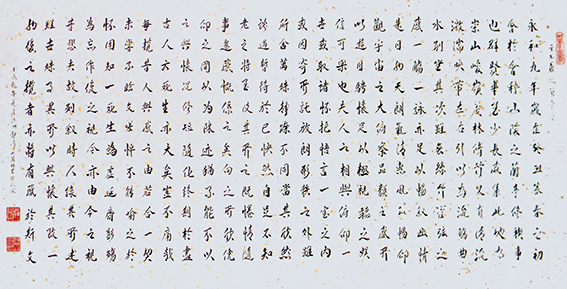 永和九年歲在癸丑暮春之初
會於會稽山陰之蘭亭修禊事
也群賢畢至少長咸集此地有
崇山峻嶺茂林修竹又有清流
激湍映帶左右引以為流觴曲
水列坐其次雖無絲竹管弦之
盛一觴一詠亦足以暢敘幽情
是日也天朗氣清惠風和暢仰
觀宇宙之大俯察品類之盛所
以遊目騁懷足以極視聽之娛
信可樂也夫人之相與俯仰一
世或取諸懷抱悟言一室之內
或因寄所託放浪形骸之外雖
趣舍萬殊靜躁不同當其欣於
所遇暫得於己快然自足不知
老之將至及其所之既倦情隨
事遷感慨係之矣向之所欣俛
仰之間以為陳跡猶不能不以
之興懷況修短隨化終期於盡
古人云死生亦大矣豈不痛哉
每攬昔人興感之由若合一契
未嘗不臨文嗟悼不能喻之於
懷固知一死生為虛誕齊彭殤
為妄作後之視今亦由今之視
昔悲夫故列敘時人錄其所述
雖世殊事異所以興懷其致一
也後之攬者亦將有感於斯文